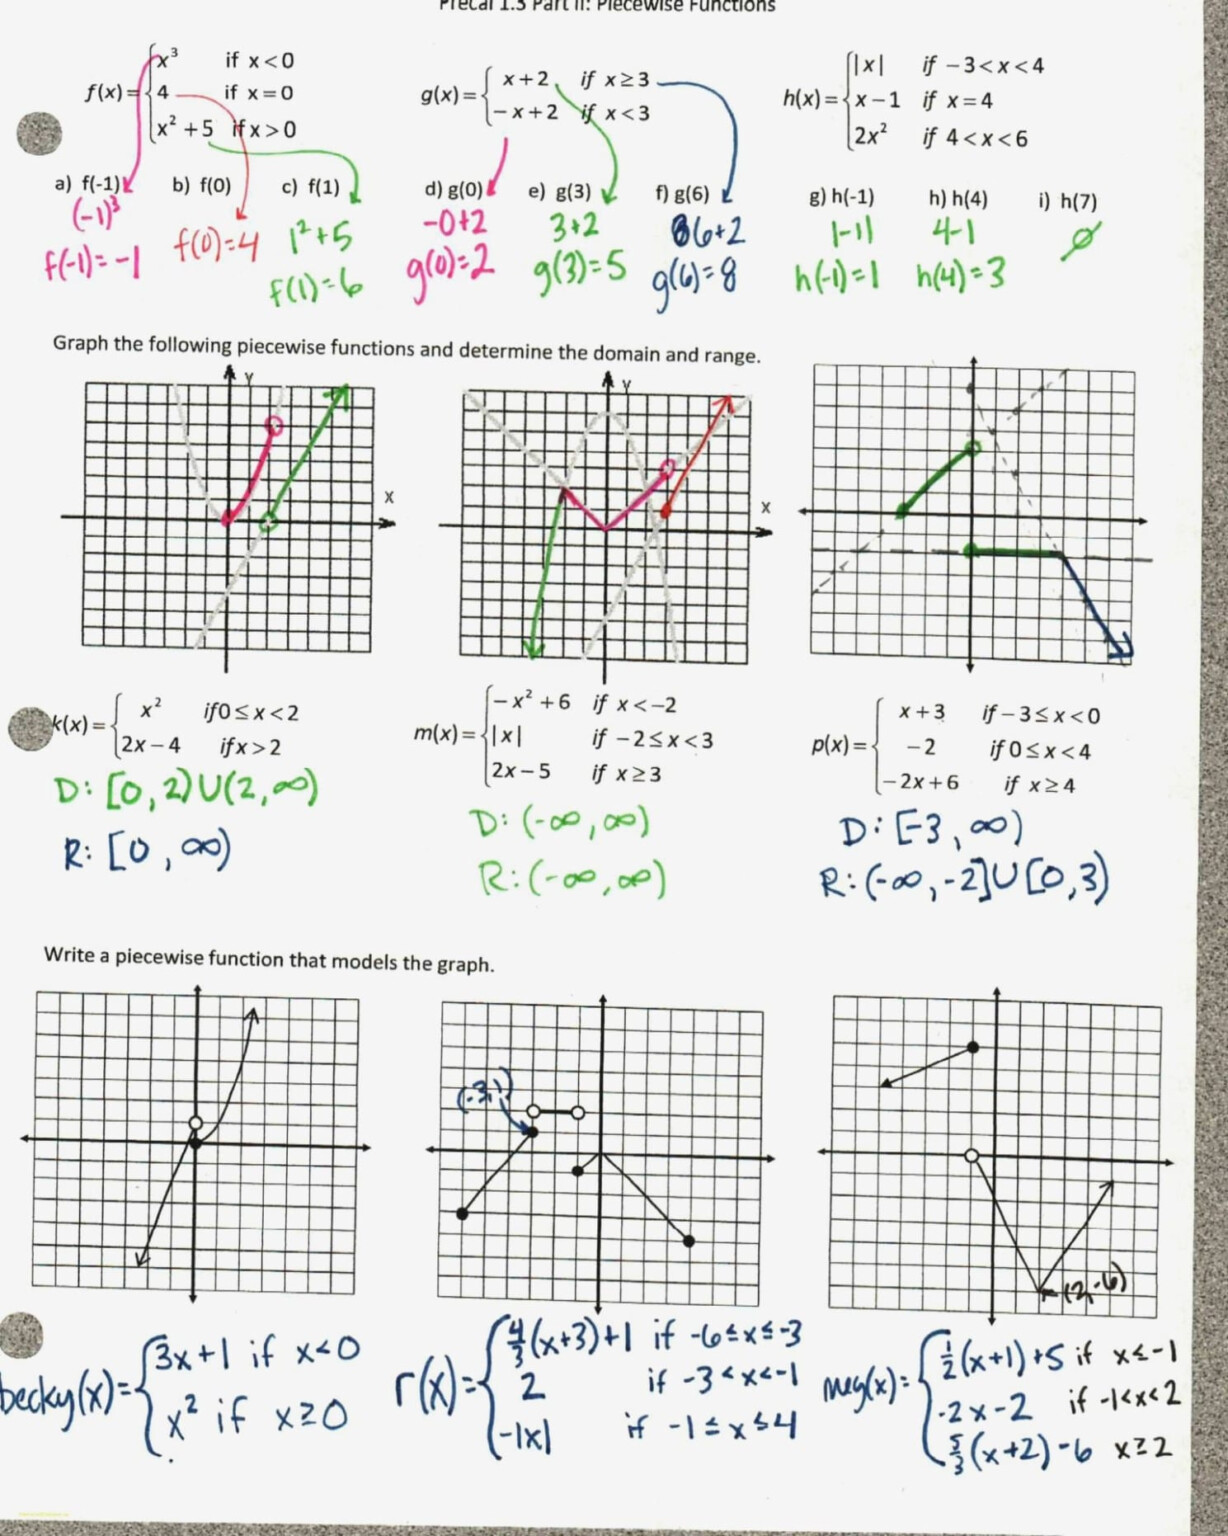 Precal 1.5 Part II: Piecewise Functions
f(x)={ x³ if x<0
4 if x=0
x²+5 if x>0
g(x)={ x+2 if x≥3
−x+2 if x<3
h(x)={ |x| if −3<x<4
x−1 if x=4
2x² if 4<x<6
a) f(-1) b) f(0) c) f(1) d) g(0) e) g(3) f) g(6) g) h(-1) h) h(4) i) h(7)
(-1)³ f(0)=4 1²+5 -0+2 3+2 6+2 |-1| 4-1 ∅
f(-1)=-1 f(1)=6 g(0)=2 g(3)=5 g(6)=8 h(-1)=1 h(4)=3
Graph the following piecewise functions and determine the domain and range.
Y
X
Y
X
k(x)={ x² if 0≤x<2
2x−4 if x>2
D: [0,2)∪(2,∞)
R: [0,∞)
m(x)={ −x²+6 if x<−2
|x| if −2≤x<3
2x−5 if x≥3
D: (-∞,∞)
R: (-∞,∞)
p(x)={ x+3 if −3≤x<0
−2 if 0≤x<4
−2x+6 if x≥4
D: [-3,∞)
R: (-∞,-2]∪[0,3)
Write a piecewise function that models the graph.
(-3,1)
(2,-6)
becky(x)={ 3x+1 if x<0
x² if x≥0
r(x)={ 4/3(x+3)+1 if -6≤x≤-3
2 if -3<x<-1
-|x| if -1≤x≤4
meg(x)={ 1/2(x+1)+5 if x≤-1
-2x-2 if -1<x<2
5/3(x+2)-6 x≥2